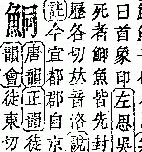 曰首象印左思吳
死者鮣魚皆先封
歷各切𠀤音洛說
註今宜都郡自京
鮦
唐韻正韻徒
韻會徒東切